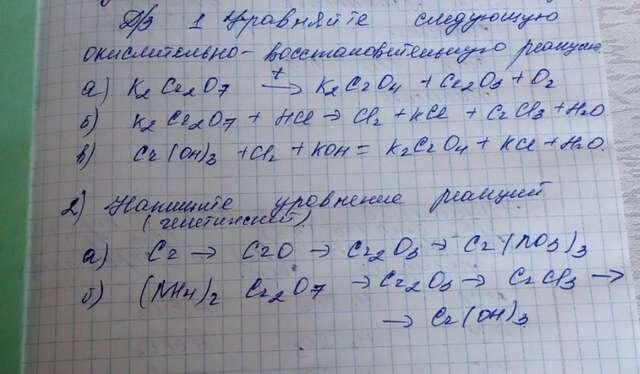 Д/з 1 Уравняйте следующую
окислительно-восстановительную реакцию
а) K₂Cr₂O₇ →t K₂CrO₄ + Cr₂O₃ + O₂
б) K₂Cr₂O₇ + HCl → Cl₂ + KCl + CrCl₃ + H₂O
в) Cr(OH)₃ + Cl₂ + KOH = K₂CrO₄ + KCl + H₂O.
2) Напишите уровнение реакций
(генетический)
а) Cr → CrO → Cr₂O₃ → Cr(NO₃)₃
б) (NH₄)₂ Cr₂O₇ → Cr₂O₃ → CrCl₃ →
→ Cr(OH)₃